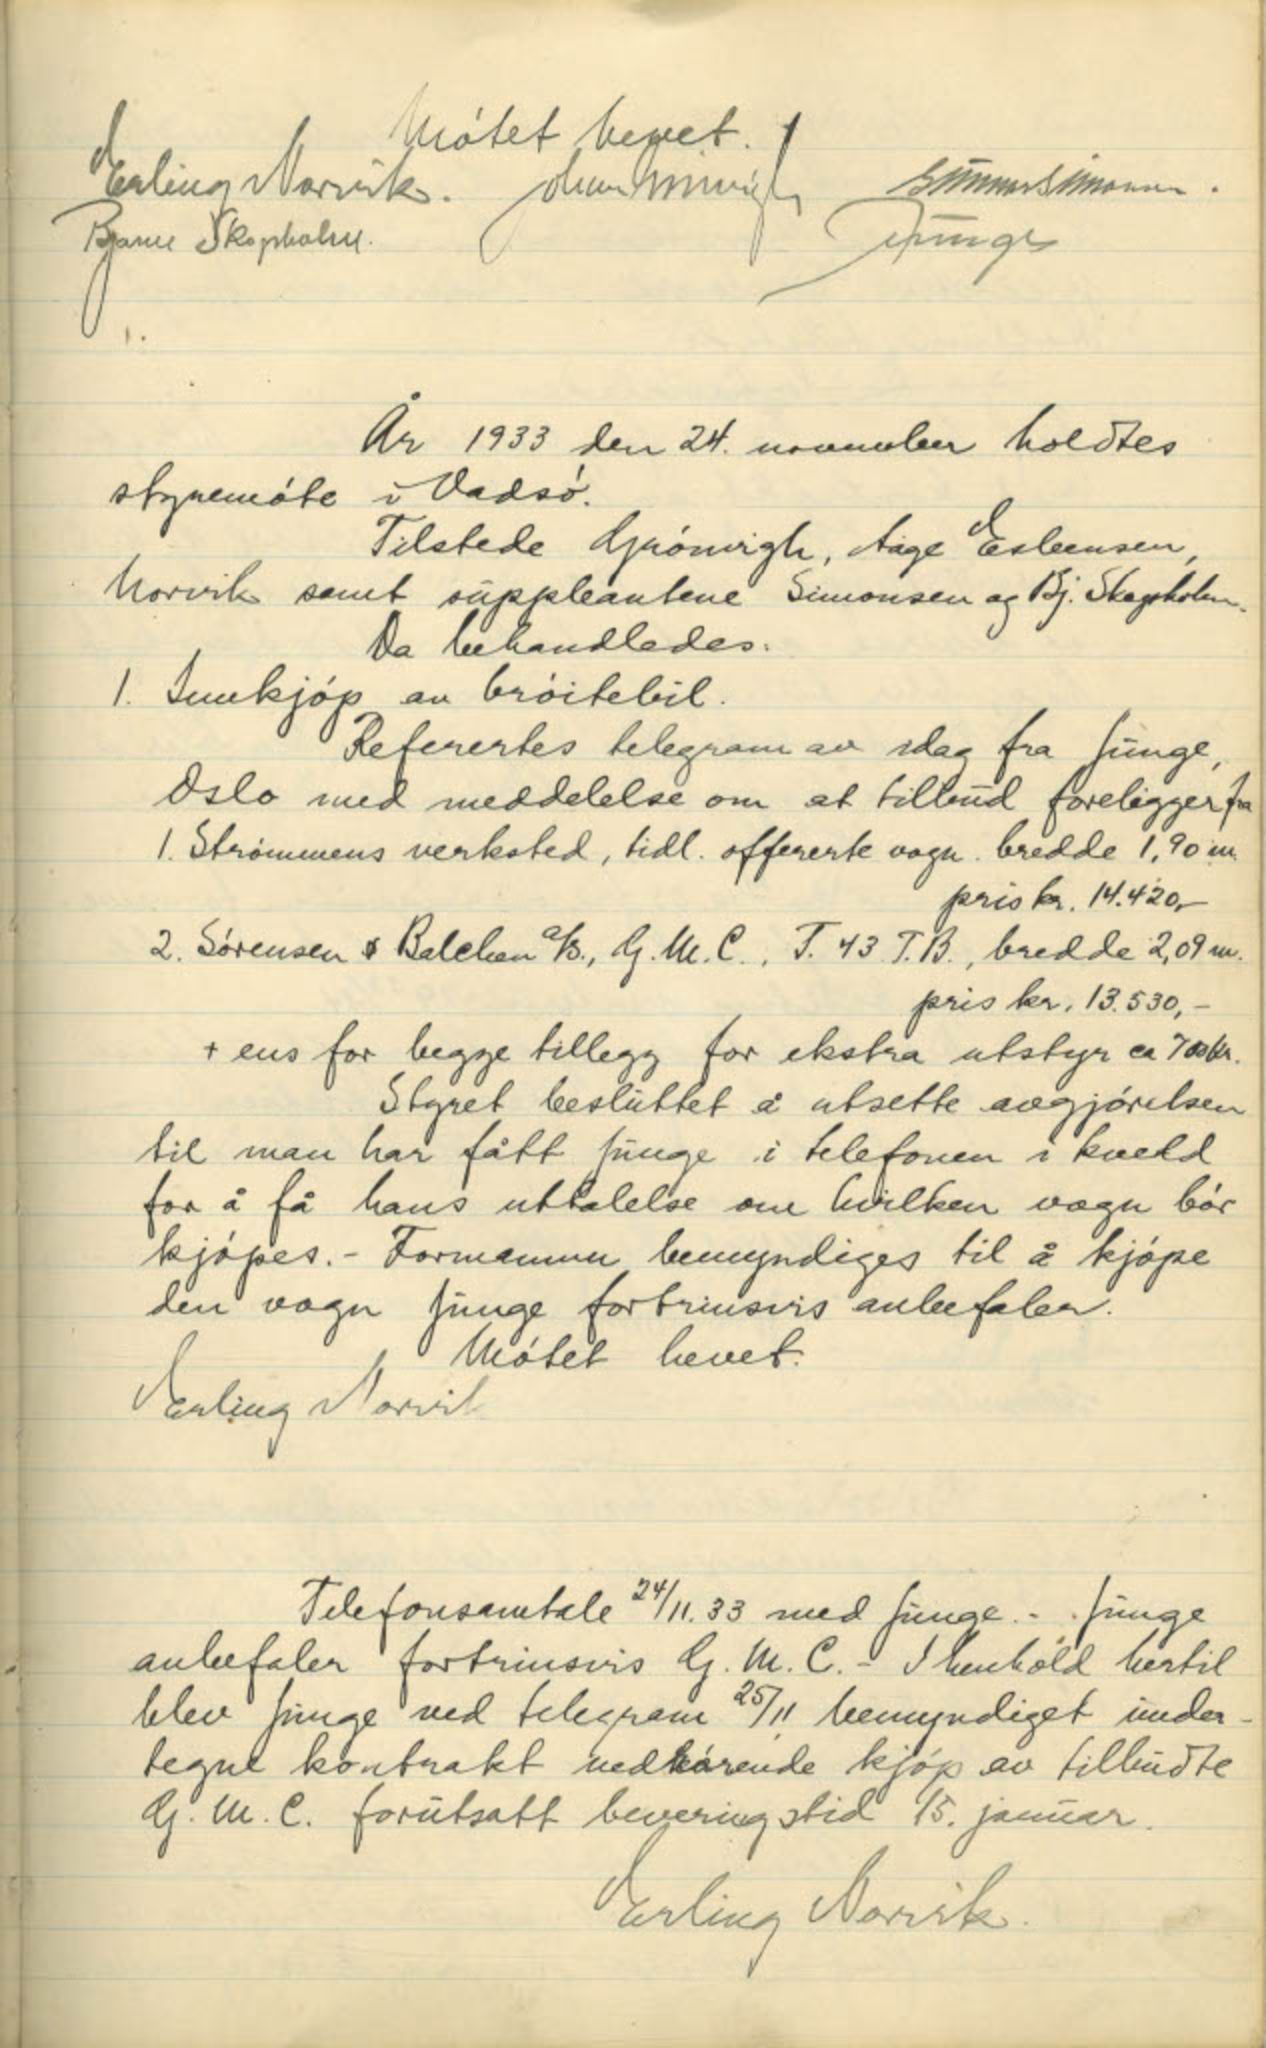 Mótet hevet.
Erling Norvik. Gunnar Simonsen.
Bjarne Skogsholm. Junge
År 1933 den 24. november holdtes
styremóte i Vadsó.
Tilstede Grónvigh, Aage Esbensen,
Norvik samt suppleantene Simonsen og Bj. Skogsholm.
Da behandledes:
1. Innkjóp av bróitebil.
Referertes telegram av idag fra Junge,
Oslo med meddelelse om at tilbud foreligger fra
1. Strømmens verksted, tidl. offererte vogn. bredde 1,90 m.
pris kr. 14.420,-
2. Sørensen & Balchen a/s., G.M.C., T. 43 T.B., bredde 2,09 m.
pris kr. 13.530,-
+ ens for begge tillegg for ekstra utstyr ca 700 kr.
Styret besluttet å utsette avgjórelsen
til man har fått Junge i telefonen i kveld
for å få hans uttalelse om hvilken vogn bór
kjópes. - Formannen bemyndiges til å kjópe
den vogn Junge fortrinsvis anbefaler.
Mótet hevet.
Erling Norvik
Telefonsamtale 24/11.33 med Junge. - Junge
anbefaler fortrinsvis G.M.C. - I henhold hertil
blev Junge ved telegram 25/11 bemyndiget under-
tegne kontrakt vedkórende kjóp av tilbudte
G.M.C. forutsatt leveringstid 15. januar.
Erling Norvik.